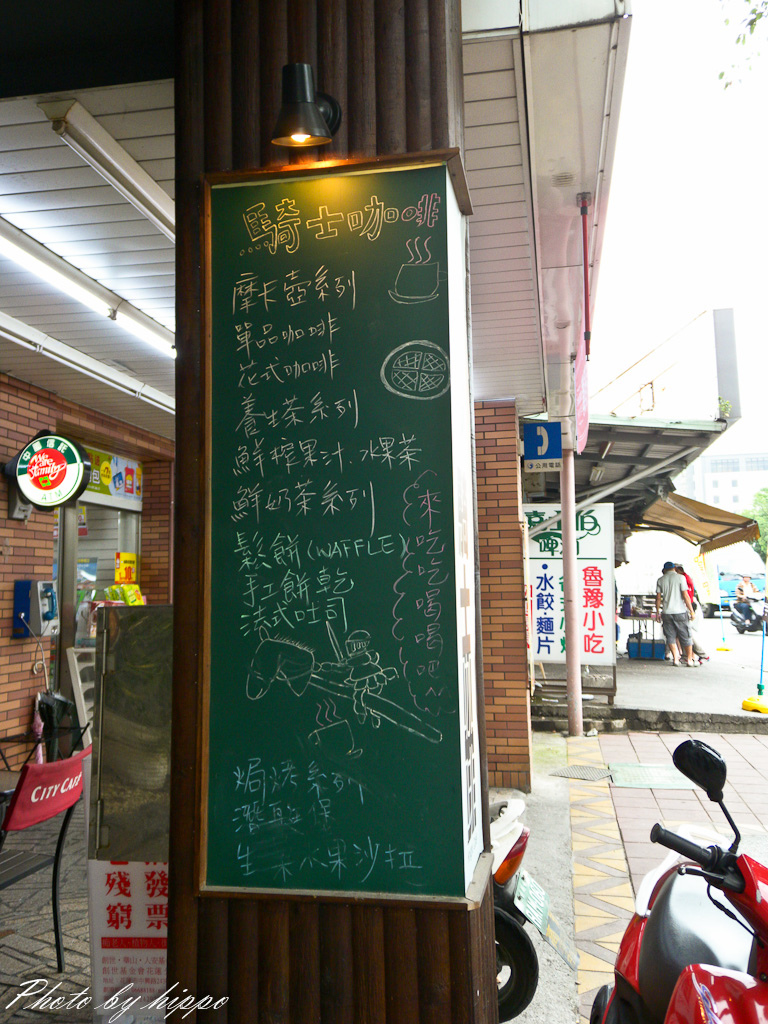 騎士咖啡
摩卡壺系列
單品咖啡
花式咖啡
養生茶系列
鮮榨果汁.水果茶
鮮奶茶系列
鬆餅(WAFFLE)
手工餅乾
法式吐司
來吃吃喝喝吧
焗烤系列
潛艇堡
生菜水果沙拉
中國信託
We are family
ATM
公用電話
魯豫小吃
·水餃·麵片
CITY CAFE
殘 發
窮 票
Photo by hippo